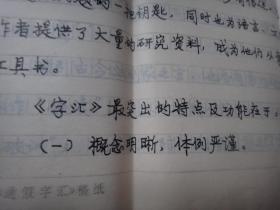 一把钥匙，同时也为语言、
作者提供了大量的研究资料，成为他们从事
工具书。
《字汇》最突出的特点及功能在于。
（一） 概念明晰，体例严谨。
字汇》稿纸